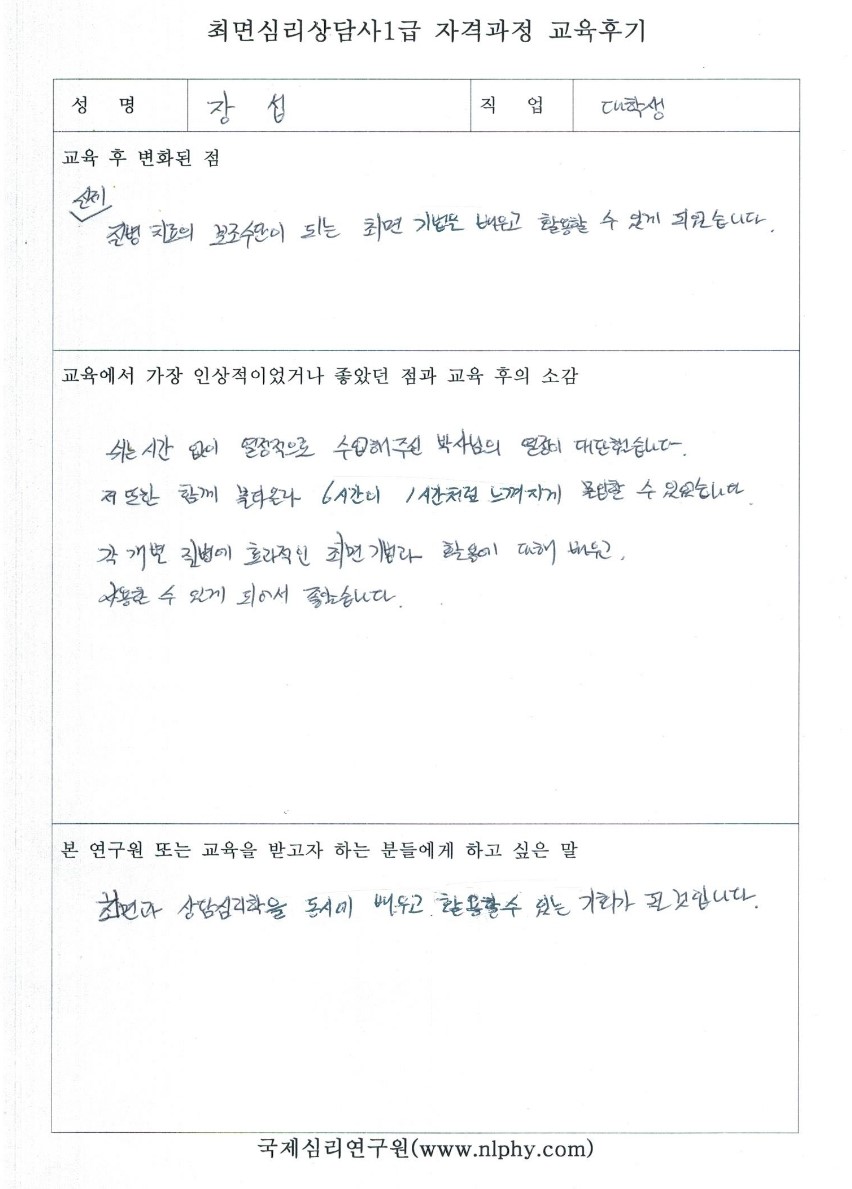 최면심리상담사1급 자격과정 교육후기
성 명 장 섭 직 업 대학생
교육 후 변화된 점
실제
질병 치료의 보조수단이 되는 최면 기법을 배우고 활용할 수 있게 되었습니다.
교육에서 가장 인상적이었거나 좋았던 점과 교육 후의 소감
쉬는시간 없이 열정적으로 수업해주신 박사님의 열정이 대단했습니다.
저 또한 함께 불타올라 6시간이 1시간처럼 느껴지게 몰입할 수 있었습니다.
각 개별 질병에 효과적인 최면기법과 활용에 대해 배우고,
사용할 수 있게 되어서 좋았습니다.
본 연구원 또는 교육을 받고자 하는 분들에게 하고 싶은 말
최면과 상담심리학을 동시에 배우고 활용할 수 있는 기회가 될 것입니다.
국제심리연구원(www.nlphy.com)